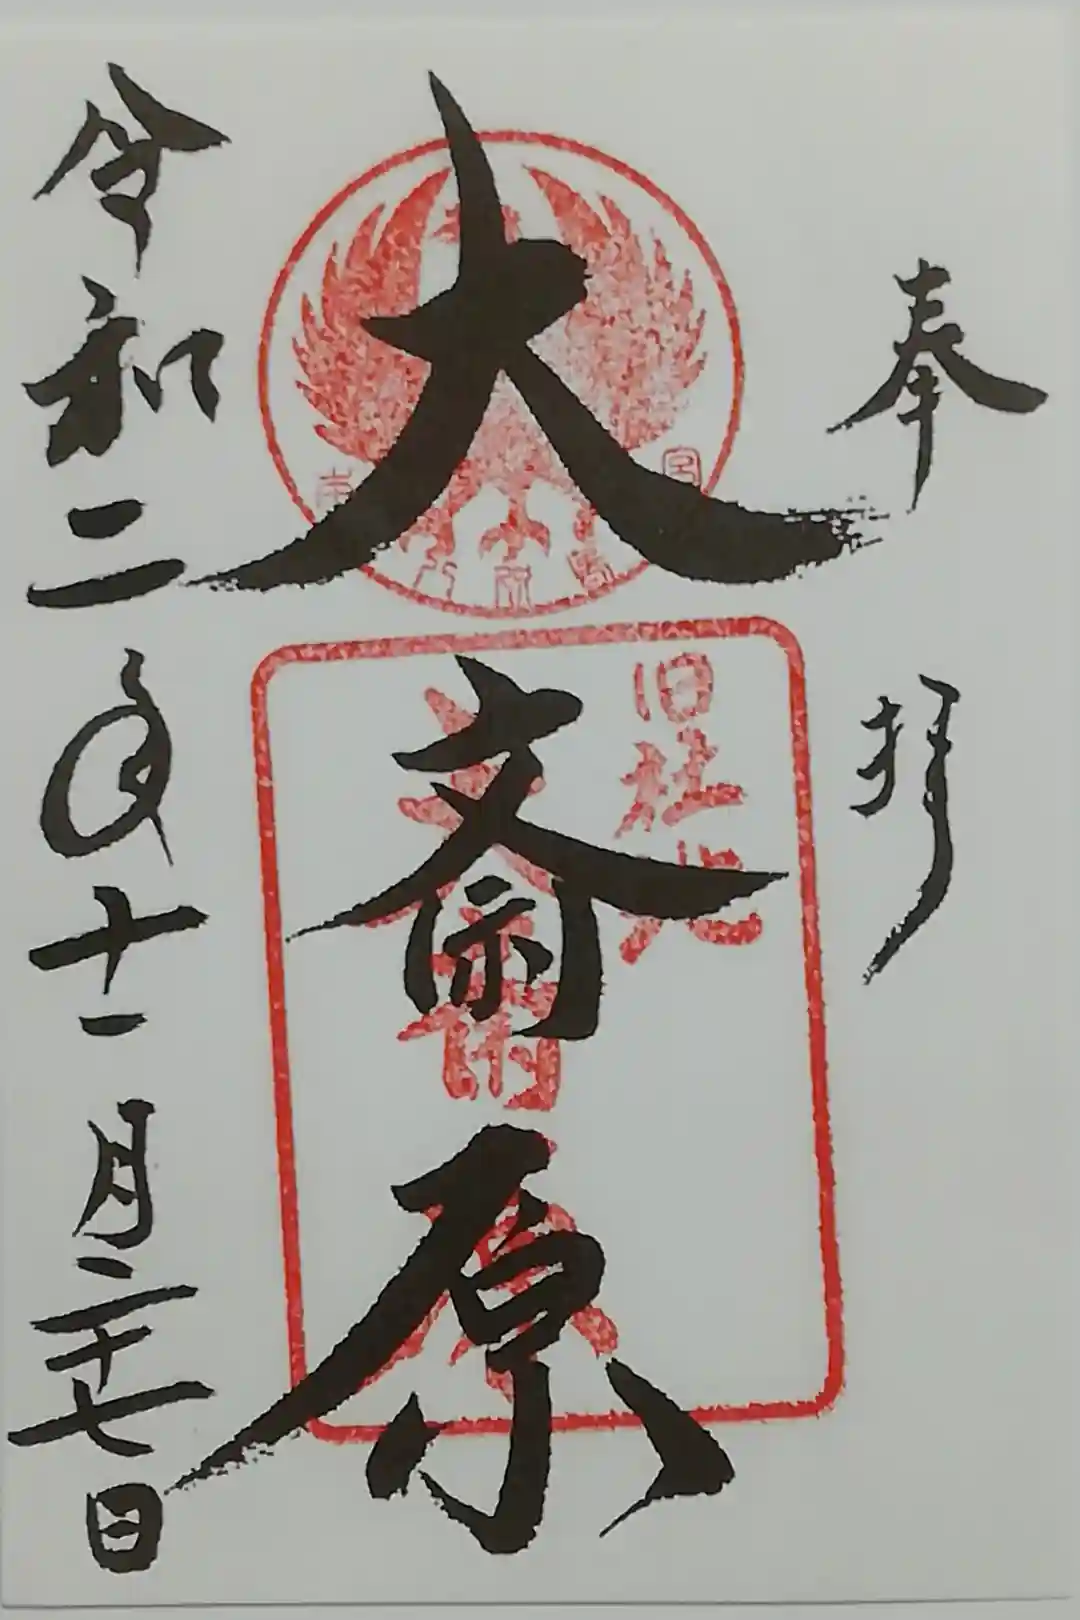 奉拝
大斎原
旧社地
大斎原
令和二年十一月二十七日